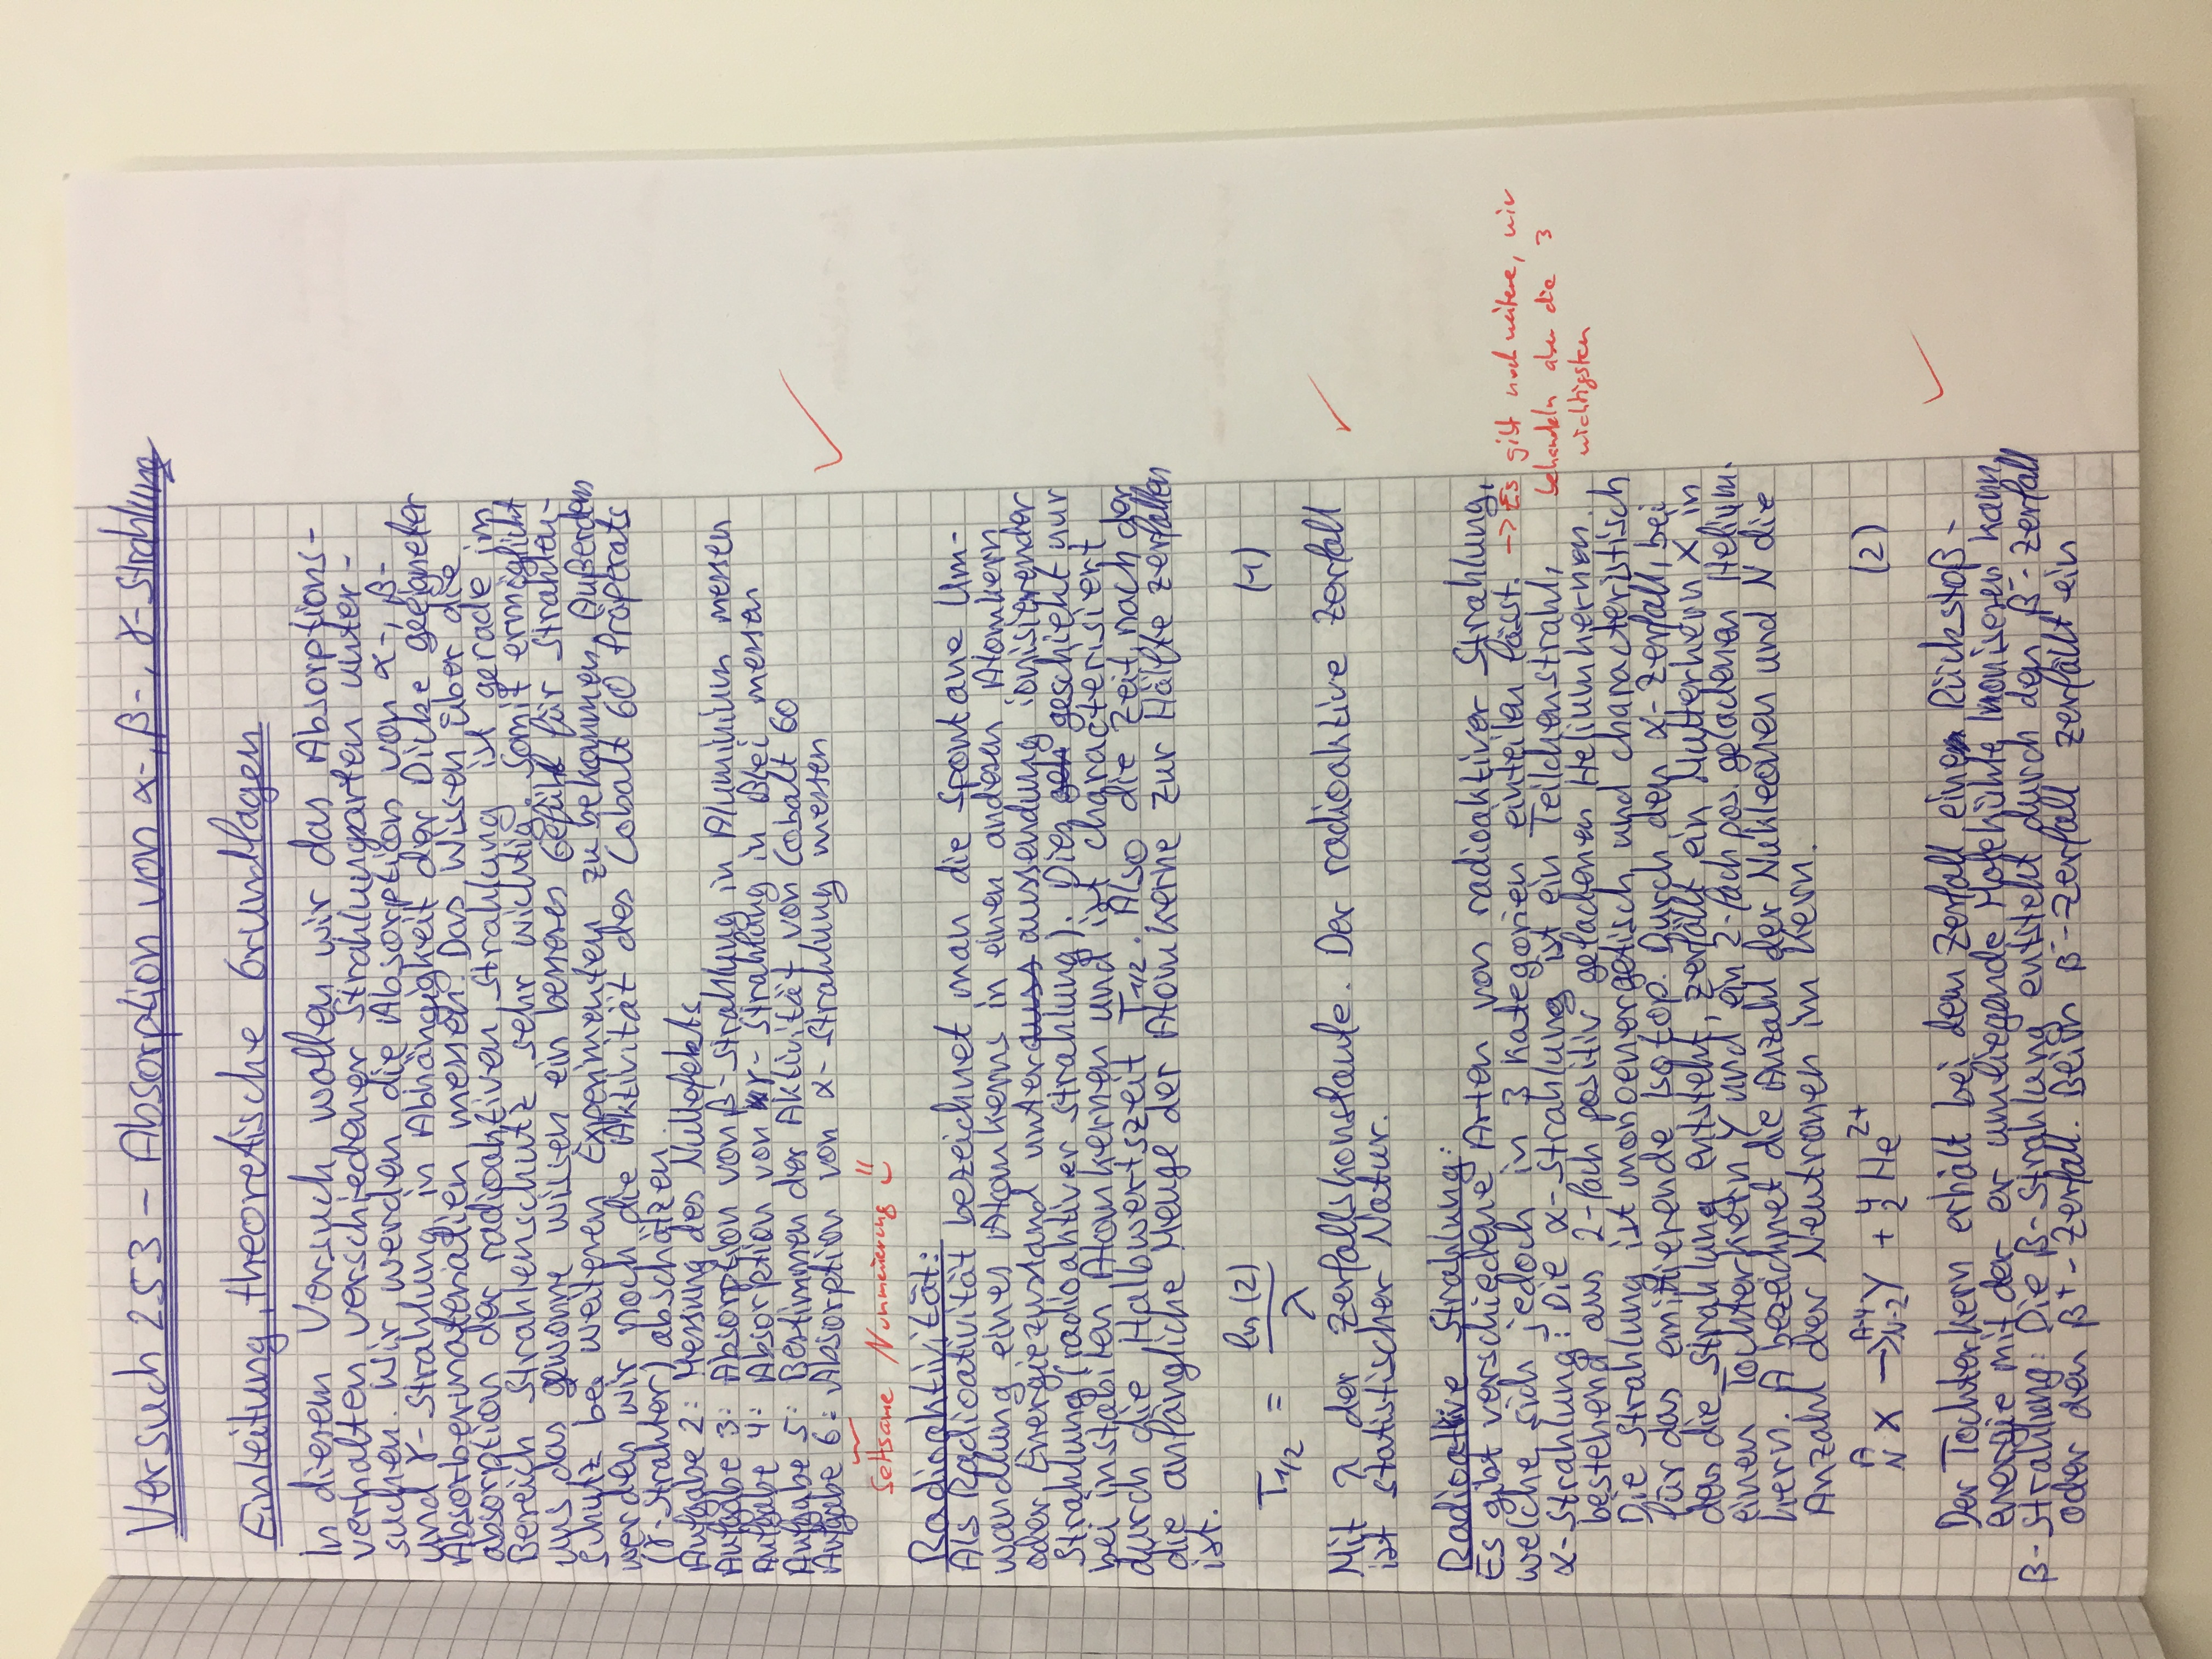 Versuch 253 – Absorption von α-, β-, γ-Strahlung
Einleitung, theoretische Grundlagen
In diesem Versuch wollen wir das Absorptions-
verhalten verschiedener Strahlungsarten unter-
suchen. Wir werden die Absorption von α-, β-
und γ-Strahlung in Abhängigkeit der Dicke geeigneter
Absorbermaterialien messen. Das Wissen über die
absorption der radioaktiven Strahlung ist gerade im
Bereich Strahlenschutz sehr wichtig. Somit ermöglicht
uns das gewonne wissen ein besseres Gefühl für Strahlen-
schutz bei weiteren Experimenten zu bekommen. Außerdem
werden wir noch die Aktivität des Cobalt 60 Präperats
(γ-Strahler) abschätzen.
Aufgabe 2: Messung des Nulleffekts
Aufgabe 3: Absorption von β-Strahlung in Aluminium messen
Aufgabe 4: Absorption von γ-Strahlung in Blei messen
Aufgabe 5: Bestimmen der Aktivität von Cobalt 60
Aufgabe 6: Absorption von α-Strahlung messen
Seltsame Nummerierung
Radioaktivität:
Als Radioativität bezeichnet man die spontane Um-
wandlung eines Atomkerns in einen anderen Atomkern
oder Energiezustand unter auss aussendung ionisierender
Strahlung (radioaktiver Strahlung). Dies geh geschieht nur
bei instabilen Atomkernen und ist characterisiert
durch die Halbwertszeit T1/2. Also die Zeit nach der
die anfängliche Menge der Atomkerne zur Hälfte zerfallen
ist.
T1/2 = ln(2)/λ (1)
Mit λ der Zerfallskonstante. Der radioaktive Zerfall
ist statistischer Natur.
Radioaktive Strahlung:
Es gibt verschiedene Arten von radioaktiver Strahlung,
welche sich jedoch in 3 Kategorien einteilen lässt. → Es gibt noch weitere, wir
behandeln aber die 3
wichtigsten
α-Strahlung: Die α-Strahlung ist ein Teilchenstrahl,
bestehend aus 2-fach positiv geladenen Heliumkernen.
Die Strahlung ist monoenergetisch und characteristisch
für das emittierende Isotop. Durch den α-Zerfall, bei
den die Strahlung entsteht, zerfällt ein Mutterkern X in
einen Tochterkern Y und ein 2-fach pos. geladenen Helium-
kern. A bezeichnet die Anzahl der Nukleonen und N die
Anzahl der Neutronen im Kern.
A N X → A-4 N-2 Y + 4 2 He 2+ (2)
Der Tochterkern erhält bei dem Zerfall eine Rückstoß-
energie mit der er umliegende Moleküle ionisieren kann.
β-Strahlung: Die β-Strahlung entsteht durch den β⁻-Zerfall
oder den β⁺-Zerfall. Beim β⁻-Zerfall zerfällt ein